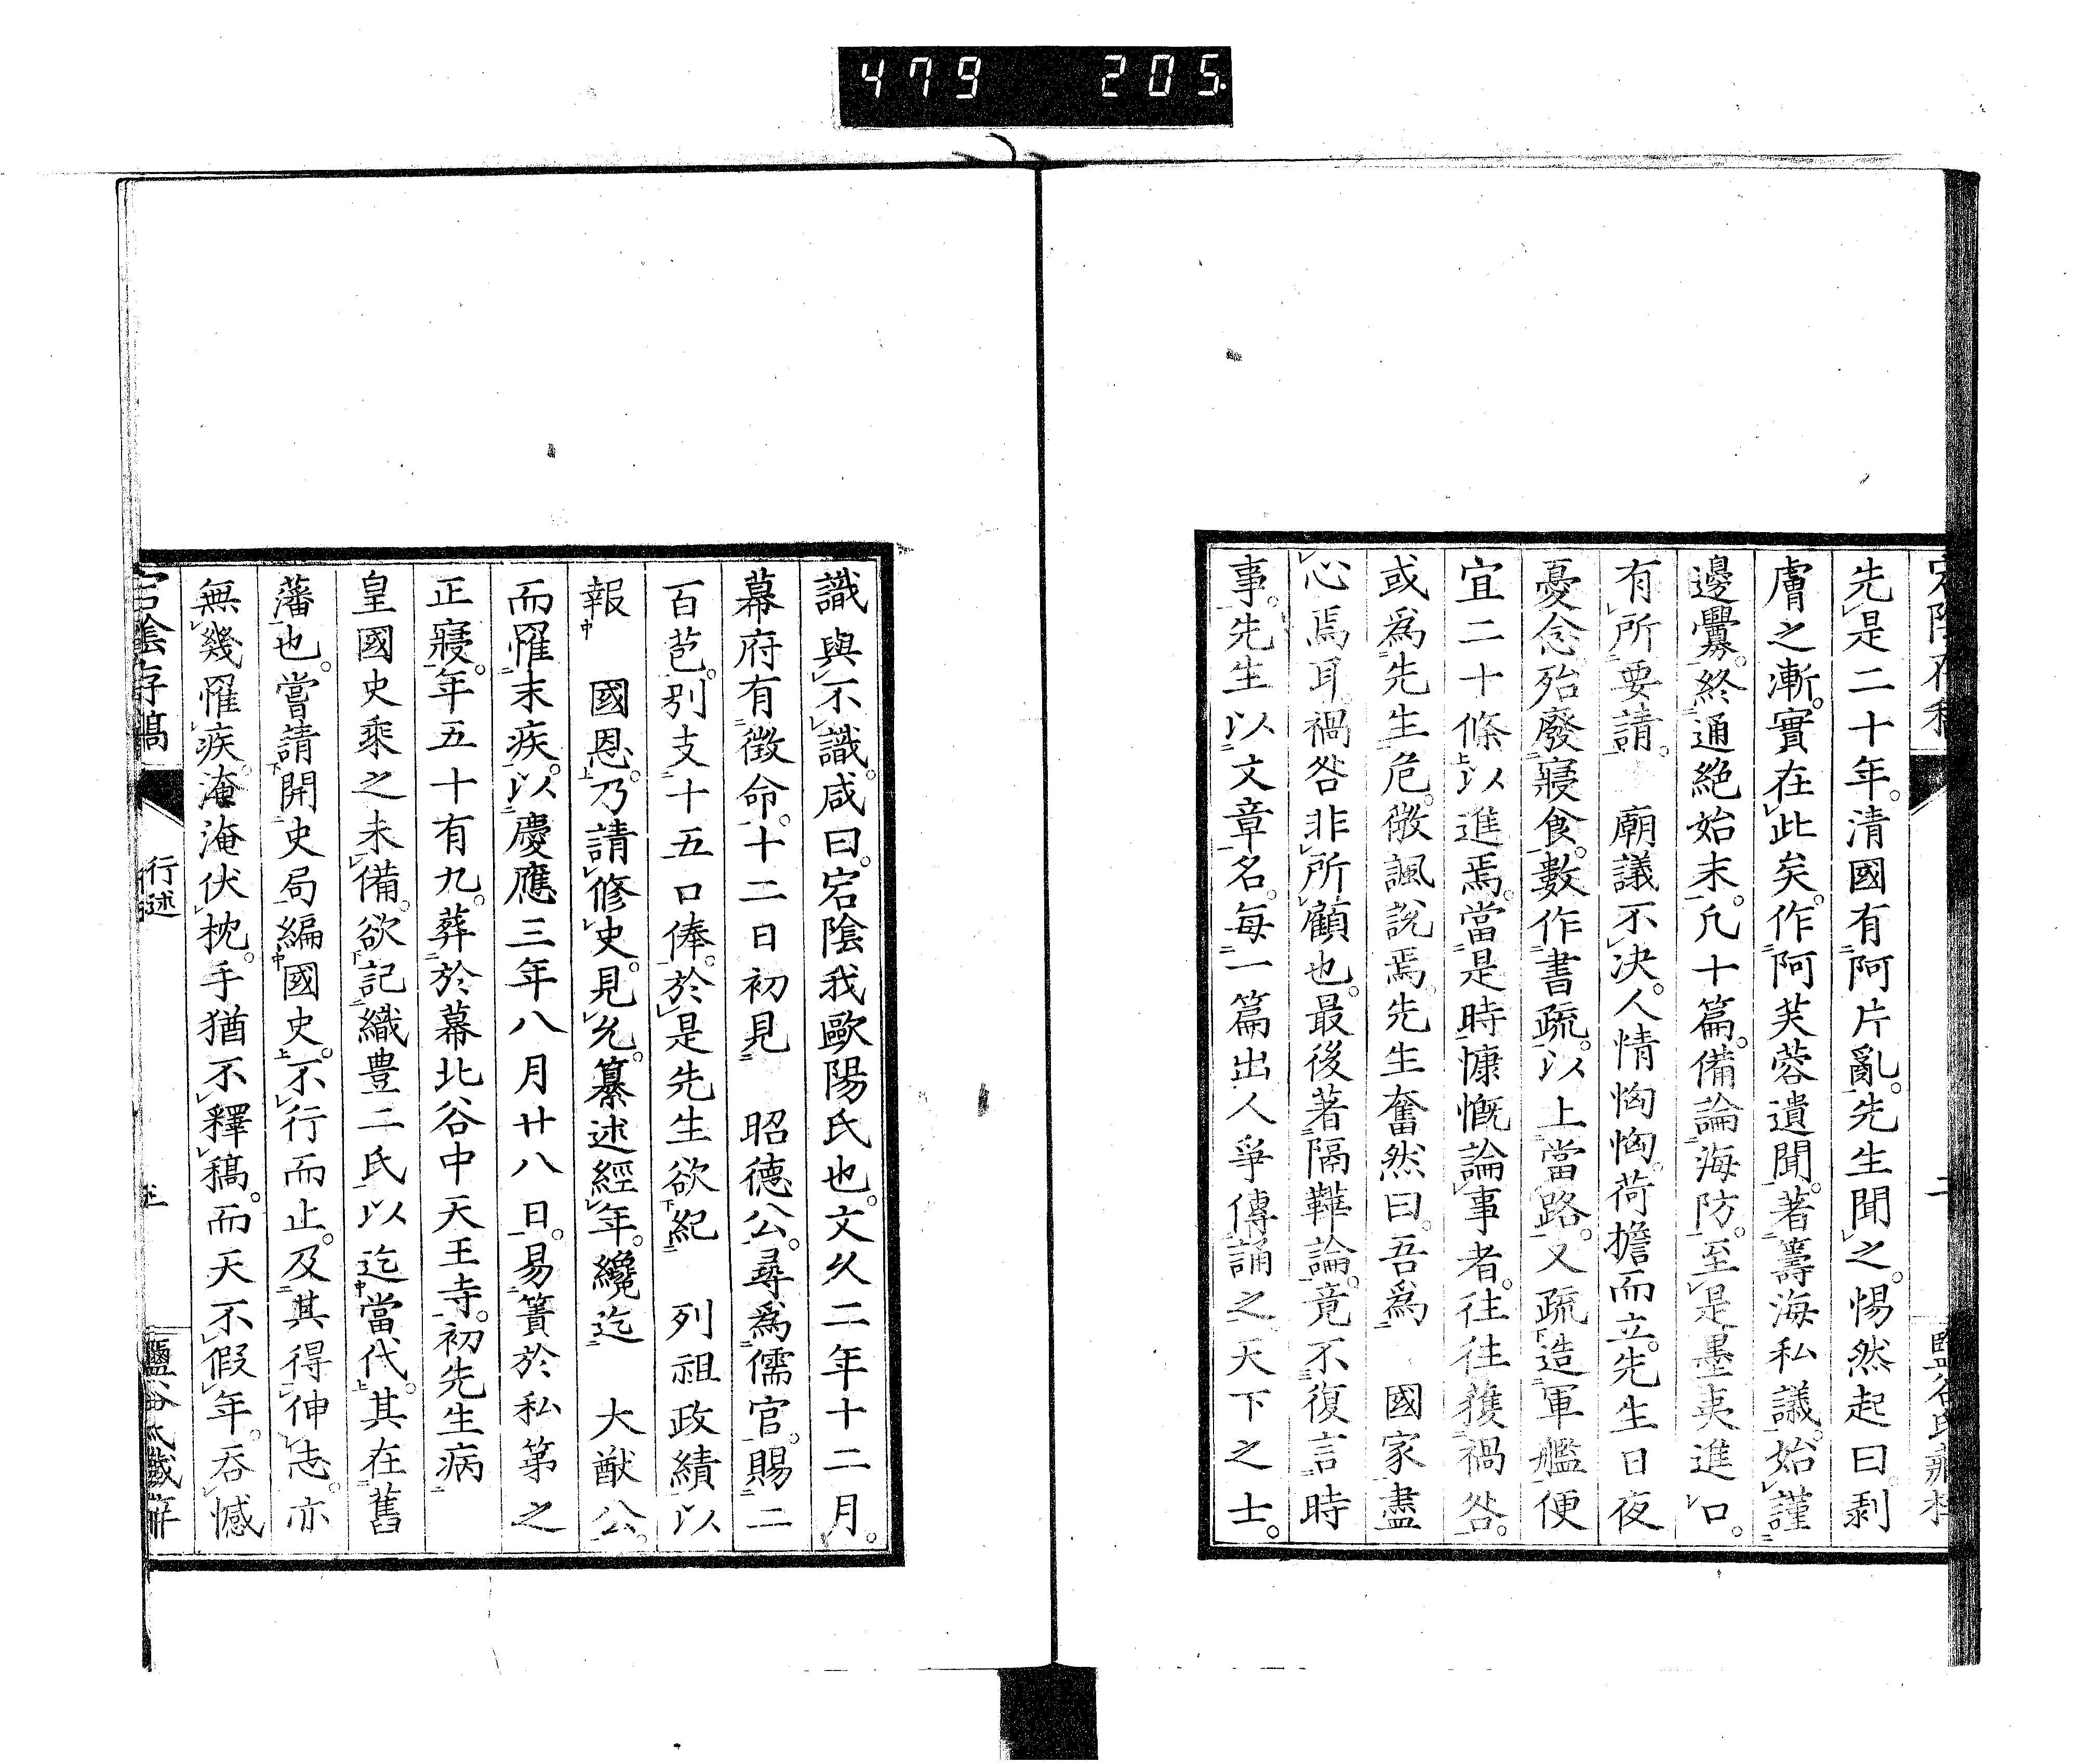 479 205
先是二十年。清國有阿片亂。先生聞之。惕然起曰。剥
膚之漸。實在此矣。作阿芙蓉遺聞。著籌海私議。始謹
邊釁。終通絶始末。凡十篇。備論海防。至是墨夷進口。
有所要請。 廟議不決。人情恟恟。荷擔而立。先生日夜
憂念。殆廢寢食。數作書疏。以上當路。又疏造軍艦便
宜二十條以進焉。當是時慷慨論事者。往往獲禍咎。
或爲先生危。微諷說焉。先生奮然曰。吾爲 國家盡
心焉耳。禍咎非所顧也。最後著隔鞾論。竟不復言時
事。先生以文章名。每一篇出人爭傳誦之。天下之士。
識與不識。咸曰。宕陰我歐陽氏也。文久二年十二月。
幕府有徵命。十二日初見 昭德公。尋爲儒官。賜二
百苞。別支十五口俸。於是先生欲紀 列祖政績以
報 國恩。乃請修史。見允。纂述經年。纔迄 大猷公。
而罹末疾。以慶應三年八月廿八日。易簀於私第之
正寢。年五十有九。葬於幕北谷中天王寺。初先生病
皇國史乘之未備。欲記織豊二氏以迄當代。其在舊
藩也。嘗請開史局編國史。不行而止。及其得伸志。亦
無幾罹疾。淹淹伏枕。手猶不釋稿。而天不假年。呑憾
宕陰存稿
行述